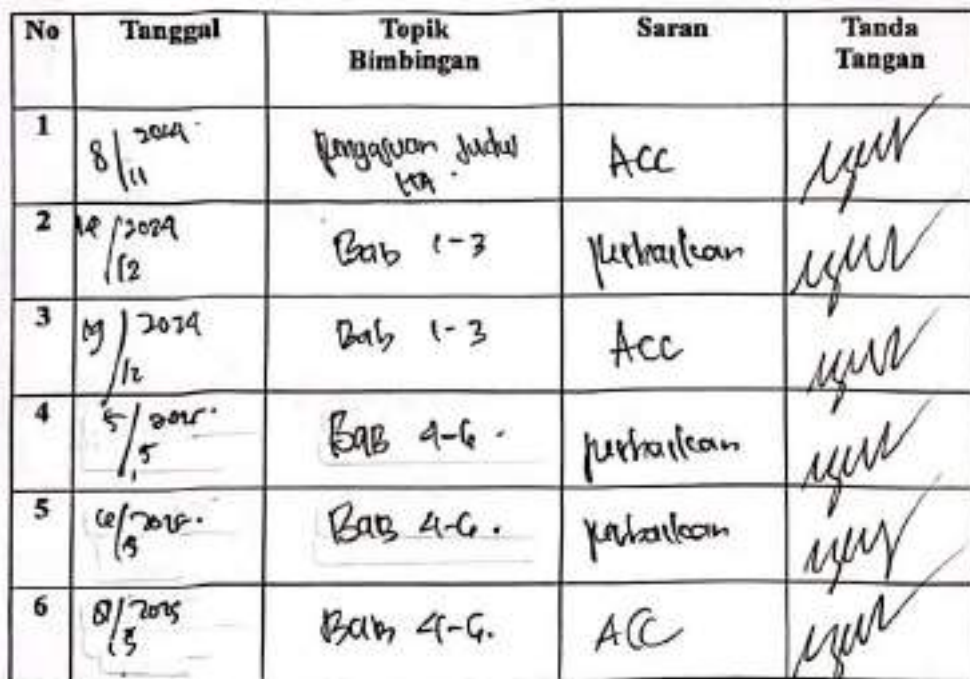 No Tanggal Topik Bimbingan Saran Tanda Tangan
1 8/11 2024 Pengajuan Judul ACC
2 /12 2024 Bab 1-3 perbaikan
3 19/12 2024 Bab 1-3 ACC
4 5/5 2025 Bab 4-6 perbaikan
5 /5 2025 Bab 4-6 perbaikan
6 /5 2025 Bab 4-6 ACC